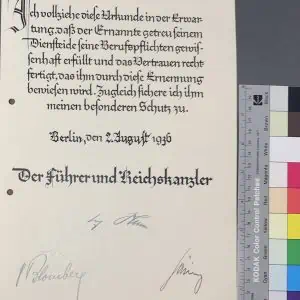 Ich vollziehe diese Urkunde in der Erwar-
tung, daß der Ernannte getreu seinem
Diensteide seine Berufspflichten gewis-
senhaft erfüllt und das Vertrauen recht-
fertigt, das ihm durch diese Ernennung
bewiesen wird. Zugleich sichere ich ihm
meinen besonderen Schutz zu.
Berlin, den 2. August 1936
Der Führer und Reichskanzler
v Blomberg
Göring
KODAK Color Control Patches
White
Magenta
Red
Yellow